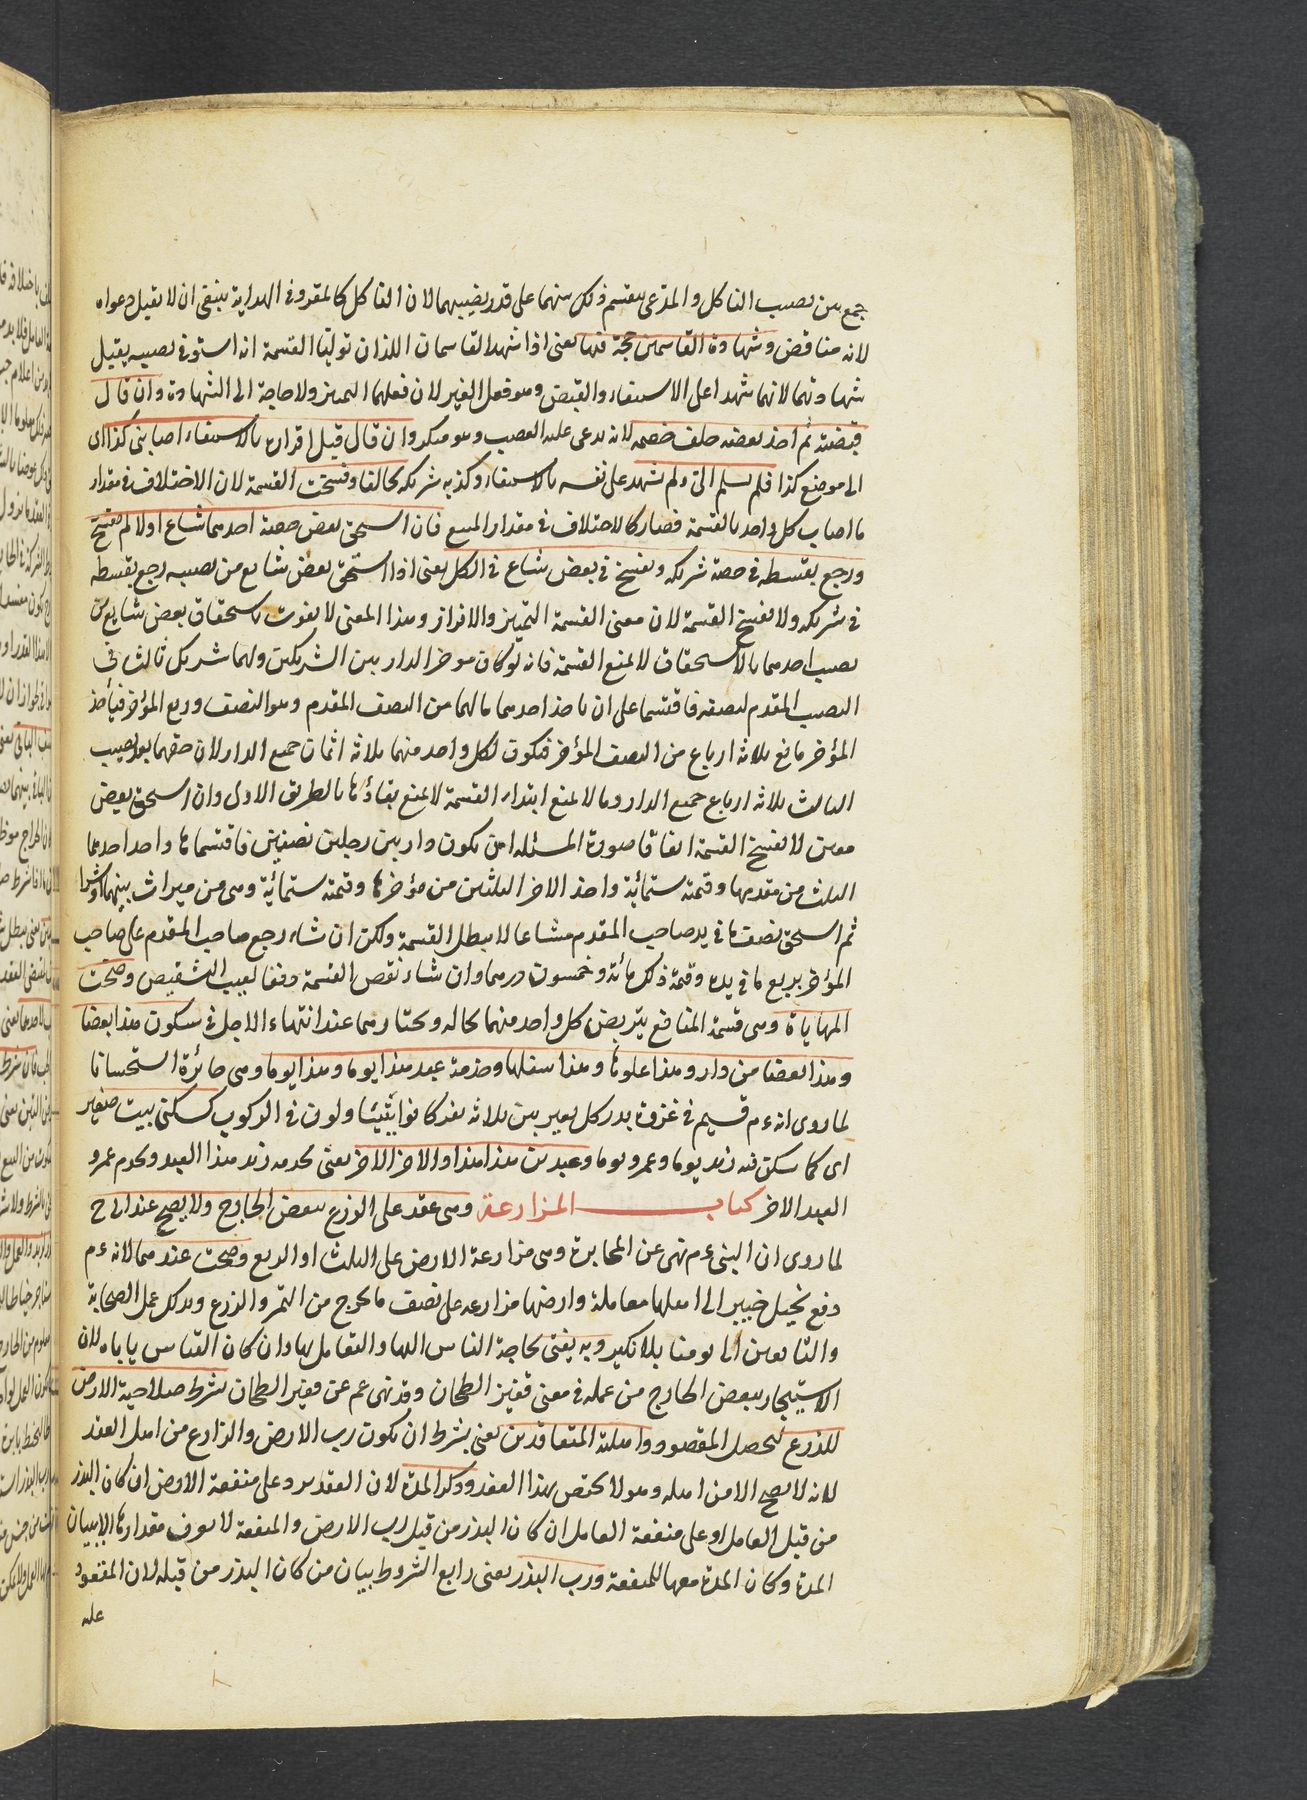 جمع بين نصيب الناكل والمدعى فيقسم ذلك بينهما على قدر نصيبهما لان الناكل كالمقر وفى الهداية ينبغى ان لا تقبل دعواه
لانه مناقض وشهادة القاسمين حجة فيها يعنى اذا شهد القاسمان اللذان توليا القسمة انه استوفى نصيبه يقبل
شهادتهما لانهما شهدا على الاستيفاء والقبض وهو فعل الغير لان فعلهما التميز ولا حاجة الى الشهادة وان قال
قبضته ثم اخذ بعضه حلف خصمه لانه يدعى عليه الغصب وهو منكر وان قال قبل اقراره بالاستيفاء اصابنى كذا الى
الى موضع كذا فلم يسلم الى ولم يشهد على نفسه بالاستيفاء وكذبه شريكه تحالفا وفسخت القسمة لان الاختلاف فى مقدار
ما اصاب كل واحد بالقسمة فصار كالاختلاف فى مقدار المبيع فان استحق بعض حصة احدهما شاع اولا لم تفسخ
ورجع بقسطه فى حصة شريكه وتفسخ فى بعض شاع فى الكل يعنى اذا استحق بعض شايع من نصيبه رجع بقسطه
فى شريكه ولا تفسخ القسمة لان معنى القسمة التميز والافراز وهذا المعنى لا يفوت باستحقاق بعض شايع من
نصيب احدهما بالاستحقاق لا يمنع القسمة فانه لو كان مؤخر الدار بين الشريكين ولهما شريك ثالث فى
النصيب المقدم لنصفه فاقتسما على ان ياخذ احدهما ما لهما من النصف المقدم وهو النصف وربع المؤخر فيأخذ
المؤخر ما بقى ثلاثة ارباع من النصف المؤخر فيكون لكل واحد منهما ثلاثة اثمان جميع الدار لان حقهما بعد نصيب
الثالث ثلاثة ارباع جميع الدار وما لا يمنع ابتداء القسمة لا يمنع بقاؤها بالطريق الاولى وان استحق بعض
معين لا تفسخ القسمة اتفاقا صورة المسئله ان يكون دار بين رجلين نصفين فاقتسماها واخذ احدهما
الثلث من مقدمها وقيمته ستمائة واخذ الاخر الثلثين من مؤخرها وقيمته ستمائة وهى من ميراث بينهما او شرا
ثم استحق نصف ما فى يد صاحب المقدم مشاعا لا يبطل القسمة ولكن ان شاء رجع صاحب المقدم على صاحب
المؤخر بربع ما فى يده وقيمة ذلك مائة وخمسون درهما وان شاء نقض القسمة دفعا لعيب الشقيص وصحت
المهاياة وهى قسمة المنافع يتربص كل واحد منهما كاله ويختارهما عند انتهاء الاجل فى سكون هذا بعضا
وهذا بعضا من دار وهذا علوها وهذا سفلها وخدمة عبد هذا يوما وهذا يوما وهى جائزة استحسانا
لما روى انه ءم قسم فى غزوة بدر كل بعير بين ثلاثة نفر كانوا يتناولون فى الركوب كسكنى بيت صغير
اى كما سكن فيه زيد يوما وعمرو يوما وعبدين هذا هذا والاخر الاخر يعنى يخدمه زيد هذا العبد ويخدم عمرو
العبد الاخر كتاب المزارعة وهى عقد على الزرع ببعض الخارج ولا يصح عند ابى ح
لما روى ان النبى ءم نهى عن المخابرة وهى مزارعة الارض على الثلث او الربع وصحت عندهما لانه ءم
دفع نخيل خيبر الى اهلها معاملة وارضها مزارعه على نصف ما يخرج من الثمر والزرع وبذلك عمل الصحابة
والتابعين الى يومنا بلا نكير وبه يفتى لحاجة الناس اليها والتعامل بها وان كان القياس ياباه لان
الاستيجار ببعض الخارج من عمله فى معنى قفيز الطحان وقد نهى عم عن قفيز الطحان بشرط صلاحية الارض
للزرع ليحصل المقصود واهلية المتعاقدين يعنى بشرط ان يكون رب الارض والزارع من اهل العقد
لانه لا يصح الا من اهله وهو لا يختص بهذا العقد وذكر المدة لان العقد يرد على منفعة الارض ان كان البذر
من قبل العامل او على منفعة العامل ان كان البذر من قبل رب الارض والمنفعة لا يعرف مقدارها الا ببيان
المدة وكان المدة معيار للمنفعة ورب البذر يعنى رابع الشروط بيان من كان البذر من قبله لان المعقود
عليه